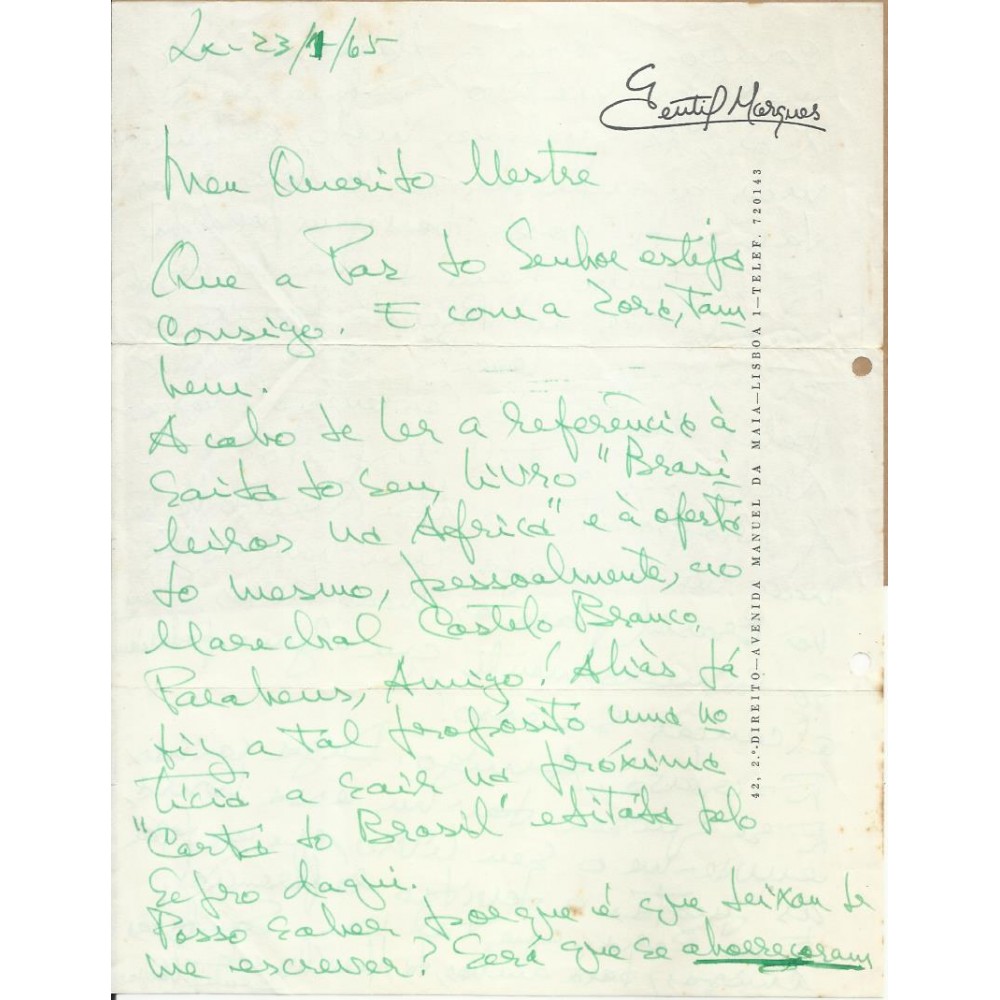 Lx- 23/1/65
Gentil Marques
Meu Querido Mestre
Que a Paz do Senhor esteja
consigo. E com a Zora, tam
bem.
Acabo de ler a referência à
saída do seu livro "Brasi
leiros na Africa" e à oferta
do mesmo, pessoalmente, ao
Marechal Castelo Branco.
Parabens, Amigo! Aliás já
fiz a tal propósito uma no
tícia a sair na próxima
"Carta do Brasil" editada pelo
daqui.
Posso saber porque é que deixou de
me escrever? Será que se aborreceram
42, 2.º-DIREITO—AVENIDA MANUEL DA MAIA—LISBOA 1—TELEF. 720143